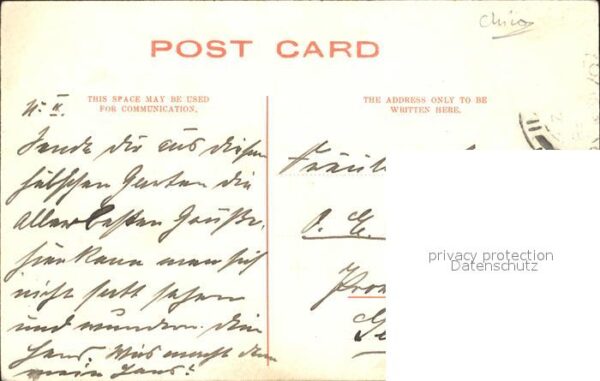 China
POST CARD
THIS SPACE MAY BE USED
FOR COMMUNICATION.
THE ADDRESS ONLY TO BE
WRITTEN HERE.
N. II.
Sende dir aus diesem
hübschen Garten die
allerbesten Grüße.
hier kann man sich
nicht satt sehen
und wundern. Dein
Hans. Was macht denn
mein Hans?
Fräul
privacy protection
Datenschutz